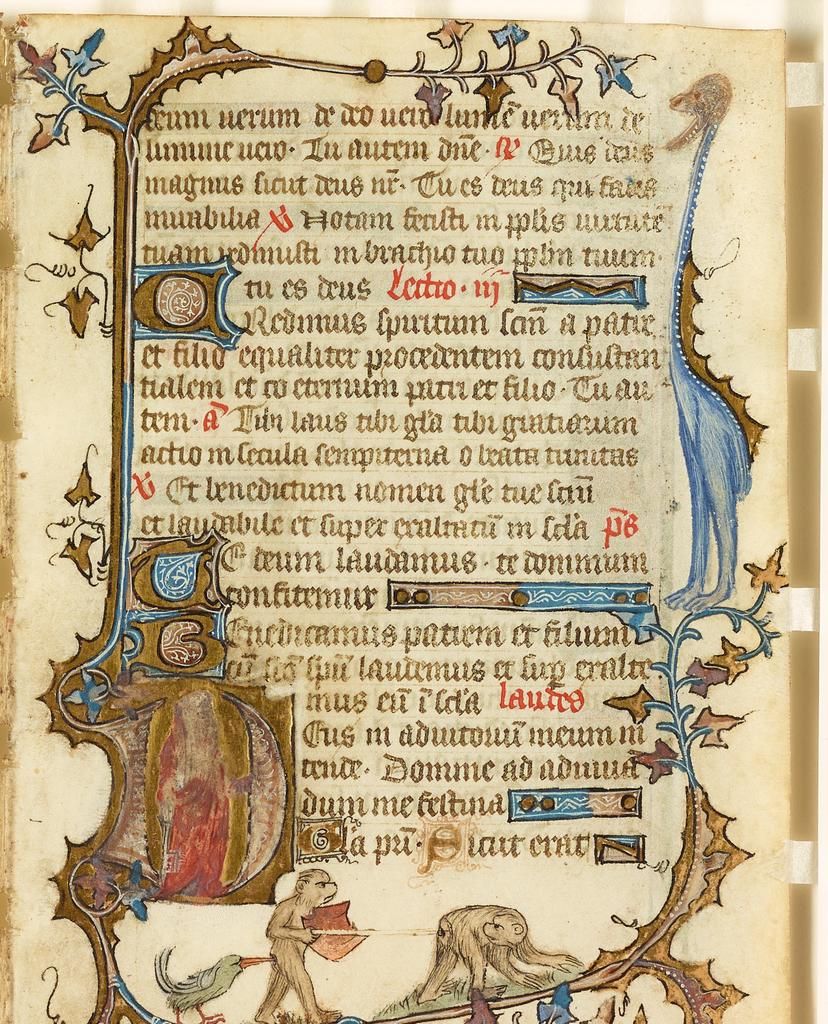 deum verum de deo vero lumē verum de
lumine vero. Tu autem dn̄e. R̷ Quis deus
magnus sicut deus nr̄. Tu es deus qui facis
mirabilia V̷ Notam fecisti in pp̄lis virtutē
tuam redimisti in brachio tuo pp̄lm tuum.
tu es deus Lectio. iij
Credimus spiritum scm̄ a patre
et filio equaliter procedentem consustan
tialem et co eternum patri et filio. Tu au
tem. a Tibi laus tibi gl̄a tibi gratiarum
actio in secula sempiterna o beata trinitas
V̷ Et benedictum nomen gl̄e tue scm̄
et laudabile et super exaltatū in scl̄a p̄s
Te deum laudamus. te dominum
confitemur
Benedicamus patrem et filium
cū scō spū laudemus et sup̄ exalte
mus eū ī scl̄a laudes
Deus in adiutoriū meum in
tende. Domine ad adiuva
dum me festina
Gl̄a pr̄i. Sicut erat